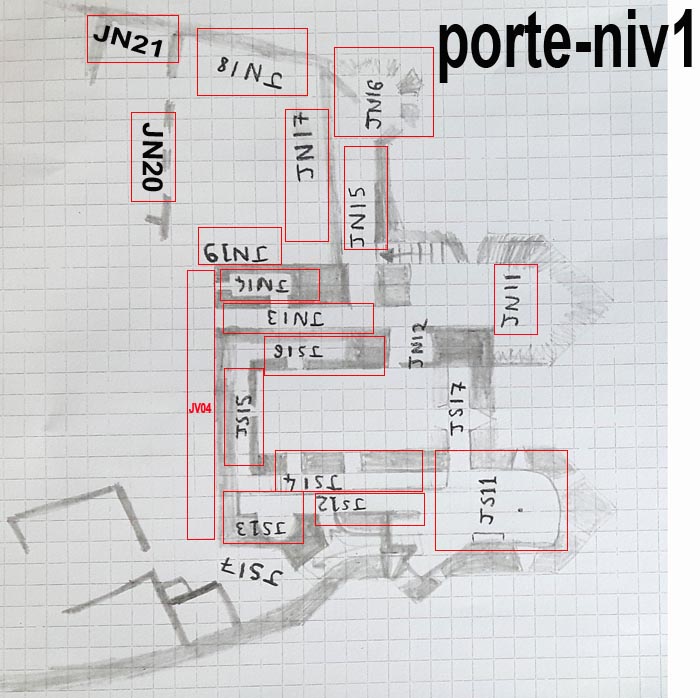 porte-niv1
JN21
JN18
JN16
JN17
JN20
JN15
JN19
JN14
JN11
JN13
JN12
JS16
JV04
JS15
JS17
JS14
JS12
JS11
JS13
JS17